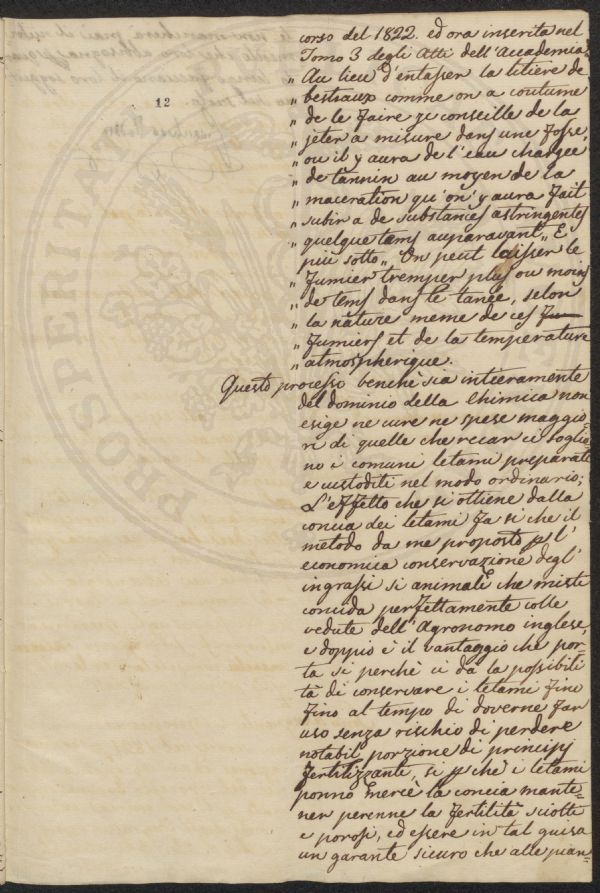 12
corso del 1822. ed ora inserita nel
Tomo 3 degli Atti dell'Accademia
„ Au lieu d'entasser la litiere de
„ bestiaux comme on a coutume
„ de le faire je conseille de la
„ jeter a misure dans une fosse,
„ ou il y aura de l'eau chargée
„ de tannin au moyen de la
„ maceration qu'on y aura fait
„ subir a de substances astringentes
„ quelque tems auparavant„ E
più sotto „ On peut laisser le
„ fumier tremper plus ou moins
„ de tems dans le tanée, selon
„ la nature meme de ces
„ fumiers et de la temperature
„ atmospherique.
Questo processo benchè sia intieramente
del dominio della Chimica non
esige ne cure ne spese maggio
ri di quelle che recar ci soglio
no i comuni letami preparati
e custoditi nel modo ordinario;
L'effetto che si ottiene dalla
concia dei letami fa si che il
metodo da me proposto p l'
economica conservazione degl'
ingrassi si animali che misti
concida perfettamente colle
vedute dell'Agronomo inglese,
e doppio è il vantaggio che por-
ta si perchè ci da la possibili
tà di conservare i letami fino
fino al tempo di doverne far
uso senza rischio di perdere
notabil porzione di principj
fertilizzanti, si p chè i letami
ponno mercè la concia mante=
ner perenne la fertilità sciolti
e porosi, ed essere in tal guisa
un garante sicuro che alle pian=
PROSPERITATI